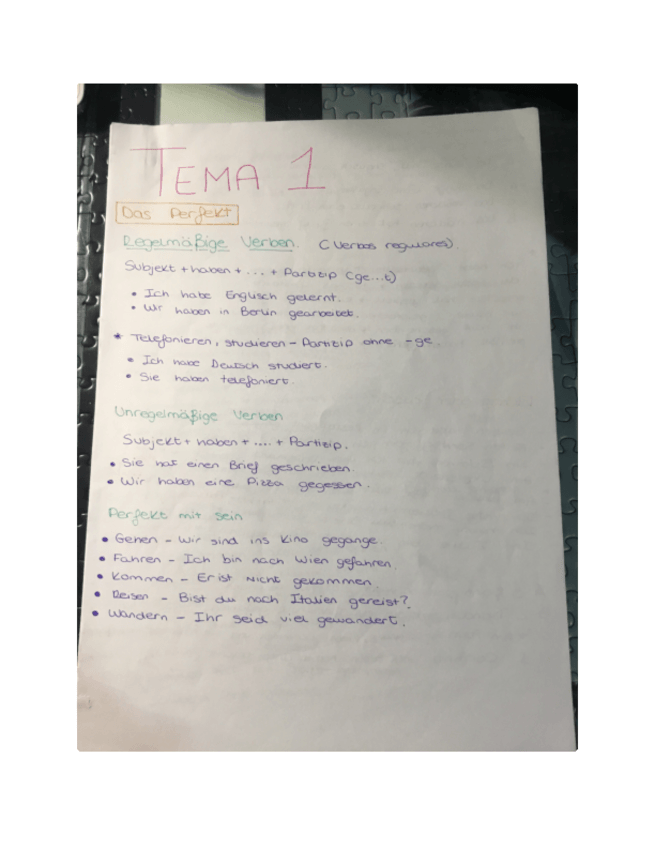 TEMA 1
Das Perfekt
Regelmäßige Verben. (Verbos regulares)
Subjekt + haben + ... + Partizip (ge...t)
• Ich habe Englisch gelernt.
• Wir haben in Berlin gearbeitet.
* Telefonieren, studieren - Partizip ohne -ge.
• Ich habe Deutsch studiert.
• Sie haben telefoniert.
Unregelmäßige Verben
Subjekt + haben + .... + Partizip.
• Sie hat einen Brief geschrieben.
• Wir haben eine Pizza gegessen.
Perfekt mit sein
• Gehen - Wir sind ins Kino gegange.
• Fahren - Ich bin nach Wien gefahren.
• Kommen - Er ist Nicht gekommen.
• Reisen - Bist du nach Italien gereist?.
• Wandern - Ihr seid viel gewandert.